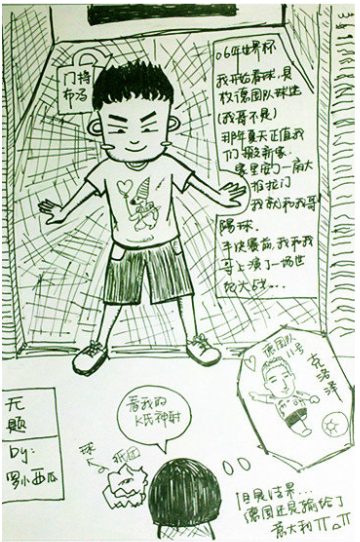 门将
布冯
06年世界杯
我开始看球,是
枚德国队球迷
(我哥不是)
那年夏天正值我
们搬新家.
家里容了一扇大
拉拉门
我就和我哥
踢球.
半决赛前,我和我
哥上演了一场世
纪大战...
德国队
11号
克洛泽
看我的
K氏神射
球
纸团
无
题
by:
罗小西瓜
但是结果...
德国还是输给了
意大利 π_π